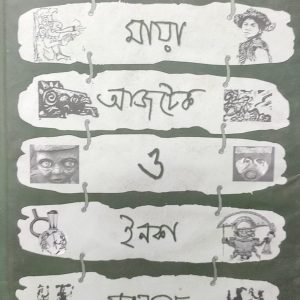 মায়া
আজটেক
ও
ইনকা